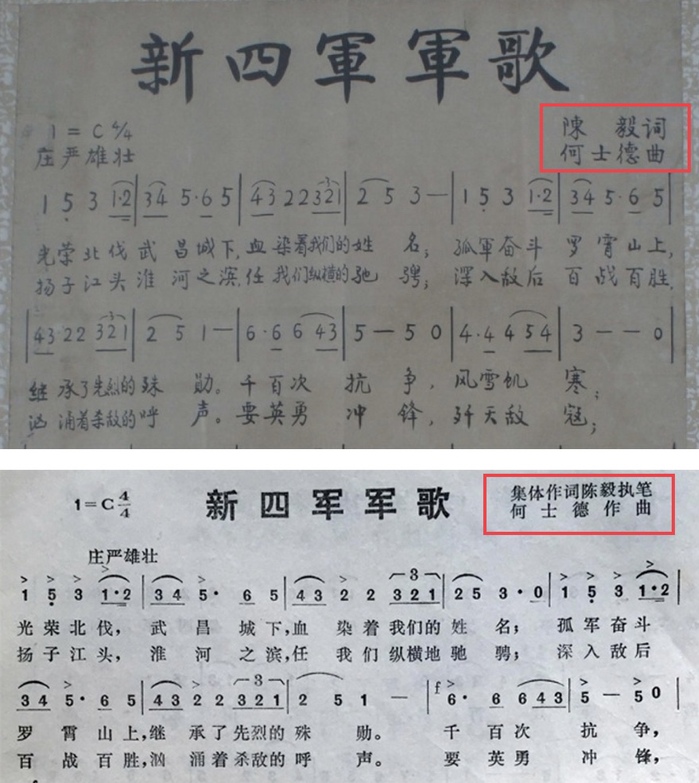 新四軍軍歌
1=C 4/4
陳毅词
庄严雄壮
何士德曲
1 5 3 1·2|34 5·6 5|43 22 321|2 5 3—|1 5 3 1·2|34 5·6 5|
光荣北伐武昌城下,血染着我们的姓名;孤軍奋斗罗霄山上,
扬子江头淮河之滨,任我们纵横的驰骋;深入敌后百战百胜,
|43 22 321|2 5 1—|6·6 6 43|5—5 0|4·4 4 54|3——0|
继承了先烈的殊勋。千百次抗争,风雪饥寒;
汹涌着杀敌的呼声。要英勇冲锋,歼灭敌寇;
1=C 4/4
新四军军歌
集体作词陈毅执笔
何士德作曲
庄严雄壮
1 5 3 1·2|34 5· 6 5|43 2 2 321|25 3·0|1 5 3 1·2|
光荣北伐,武昌城下,血染着我们的姓名;孤军奋斗
扬子江头,淮河之滨,任我们纵横地驰骋;深入敌后
34 5· 6 5|43 2 2 321|2 5 1 —|f 6· 6 6 43|5 — 5 0|
罗霄山上,继承了先烈的殊勋。千百次抗争,
百战百胜,汹涌着杀敌的呼声。要英勇冲锋,